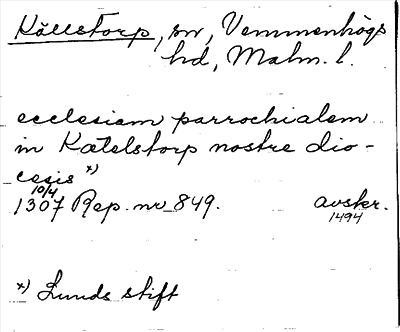 Källstorp, sn, Vemmenhögs
hd, Malm. l.
ecclesiam parrochialem
in Katelstorp nostre dio-
cesis x)
10/4
1307 Rep. nr 849. avskr.
1494
x) Lunds stift